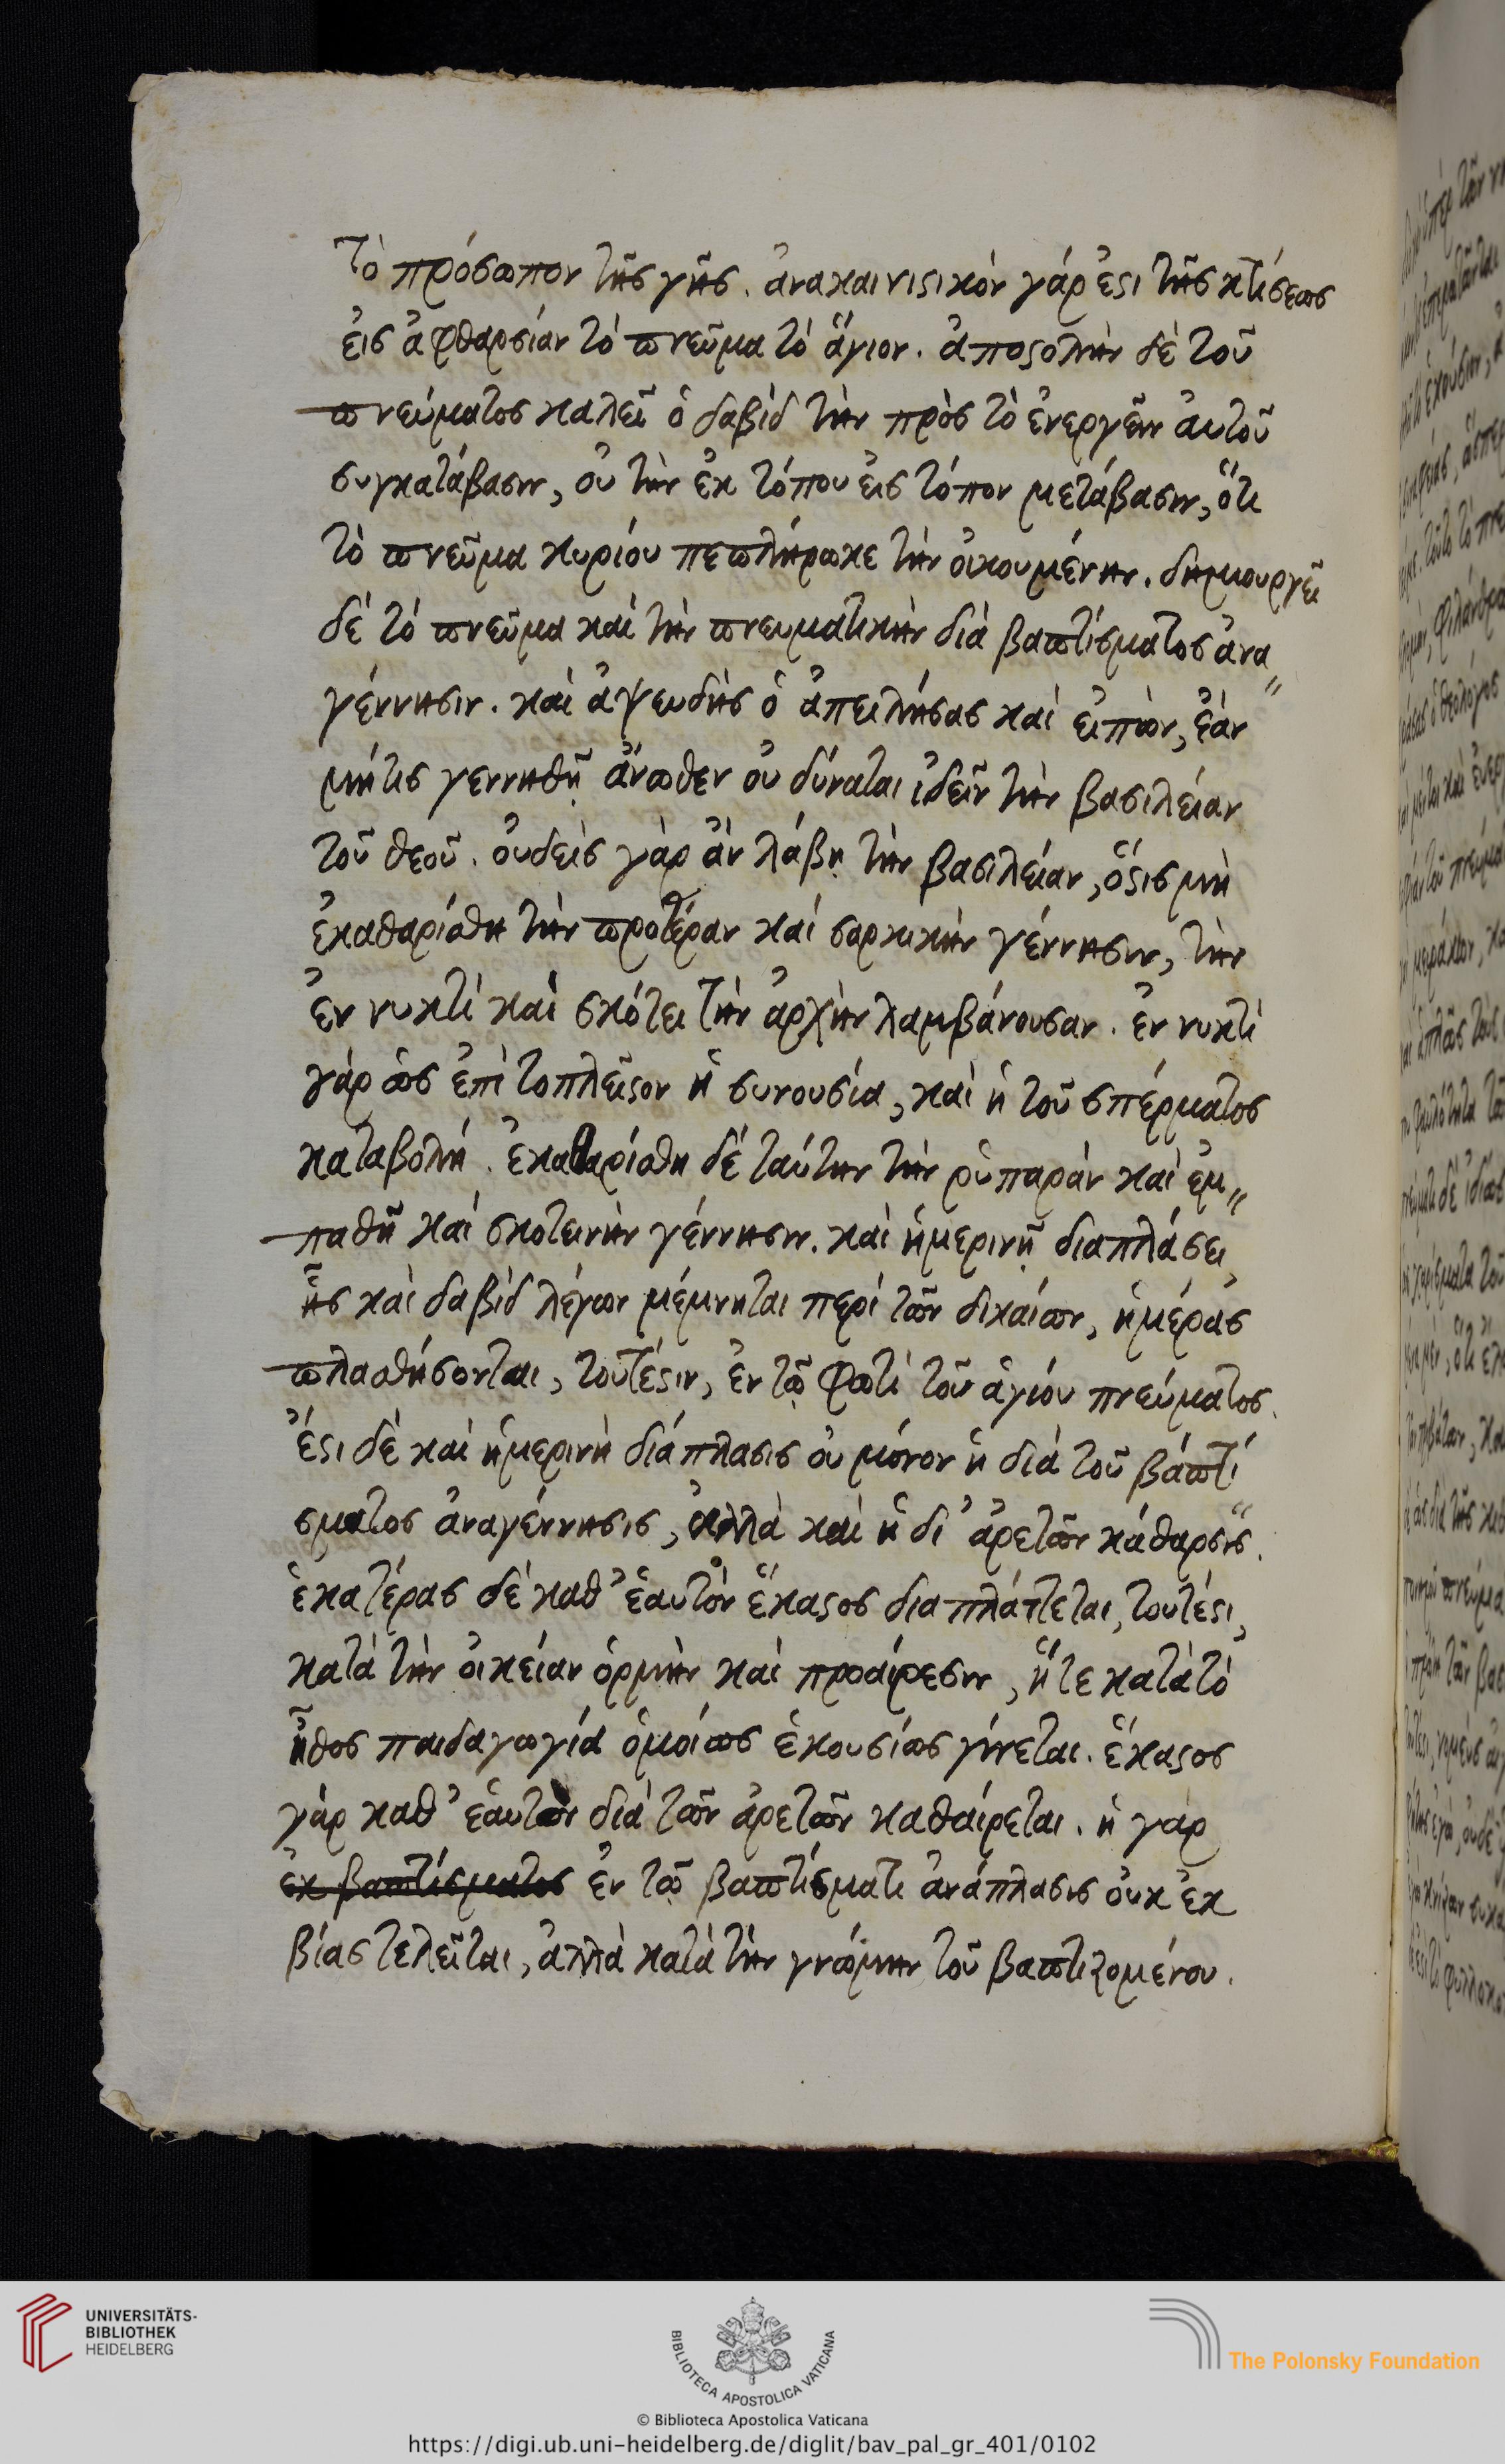 τὸ πρόσωπον τῆς γῆς. ἀνακαινιστικὸν γάρ ἐστι τῆς κτίσεως
εἰς ἀφθαρσίαν τὸ πνεῦμα τὸ ἅγιον. ἀποστολὴν δὲ τοῦ
πνεύματος καλεῖ ὁ δαβὶδ τὴν πρὸς τὸ ἐνεργεῖν αὐτοῦ
συγκατάβασιν, οὐ τὴν ἐκ τόπου εἰς τόπον μετάβασιν, ὅτι
τὸ πνεῦμα κυρίου πεπλήρωκε τὴν οἰκουμένην. δημιουργεῖ
δὲ τὸ πνεῦμα καὶ τὴν πνευματικὴν διὰ βαπτίσματος ἀνα„
γέννησιν. καὶ ἀψευδὴς ὁ ἀπειλήσας καὶ εἰπὼν, ἐὰν
μήτις γεννηθῇ ἄνωθεν οὐ δύναται ἰδεῖν τὴν βασιλείαν
τοῦ θεοῦ. οὐδεὶς γὰρ ἂν λάβῃ τὴν βασιλείαν, ὅστις μὴ
ἐκαθαρίσθη τὴν προτέραν καὶ σαρκικὴν γέννησιν, τὴν
ἐν νυκτὶ καὶ σκότει τὴν ἀρχὴν λαμβάνουσαν. ἐν νυκτὶ
γὰρ ὡς ἐπὶ τοπλεῖστον ἡ συνουσία, καὶ ἡ τοῦ σπέρματος
καταβολή. ἐκαθαρίσθη δὲ ταύτην τὴν ῥυπαρὰν καὶ ἐμ„
παθῆ καὶ σκοτεινὴν γέννησιν. καὶ ἡμερινῇ διαπλάσει
ἧς καὶ δαβὶδ λέγων μέμνηται περὶ τῶν δικαίων, ἡμέρας
πλασθήσονται, τουτέστιν, ἐν τῷ φωτὶ τοῦ ἁγίου πνεύματος.
ἔστι δὲ καὶ ἡμερινὴ διάπλασις οὐ μόνον ἡ διὰ τοῦ βαπτί
σματος ἀναγέννησις, ἀλλὰ καὶ ἡ δι' ἀρετῶν κάθαρσις.
ἑκατέρας δὲ καθ' ἑαυτὸν ἕκαστος διαπλάττεται, τουτέστι,
κατὰ τὴν οἰκείαν ὁρμὴν καὶ προαίρεσιν, ἥ τε κατὰ τὸ
ἦθος παιδαγωγία ὁμοίως ἑκουσίως γίνεται. ἕκαστος
γὰρ καθ' ἑαυτὸν διὰ τῶν ἀρετῶν καθαίρεται. ἡ γὰρ
ἐκ βαπτίσματος ἐν τῷ βαπτίσματι ἀνάπλασις οὐκ ἐκ
βίας τελεῖται, ἀλλὰ κατὰ τὴν γνώμην τοῦ βαπτιζομένου.
UNIVERSITÄTS-
BIBLIOTHEK
HEIDELBERG
BIBLIOTECA APOSTOLICA VATICANA
The Polonsky Foundation
© Biblioteca Apostolica Vaticana
https://digi.ub.uni-heidelberg.de/diglit/bav_pal_gr_401/0102